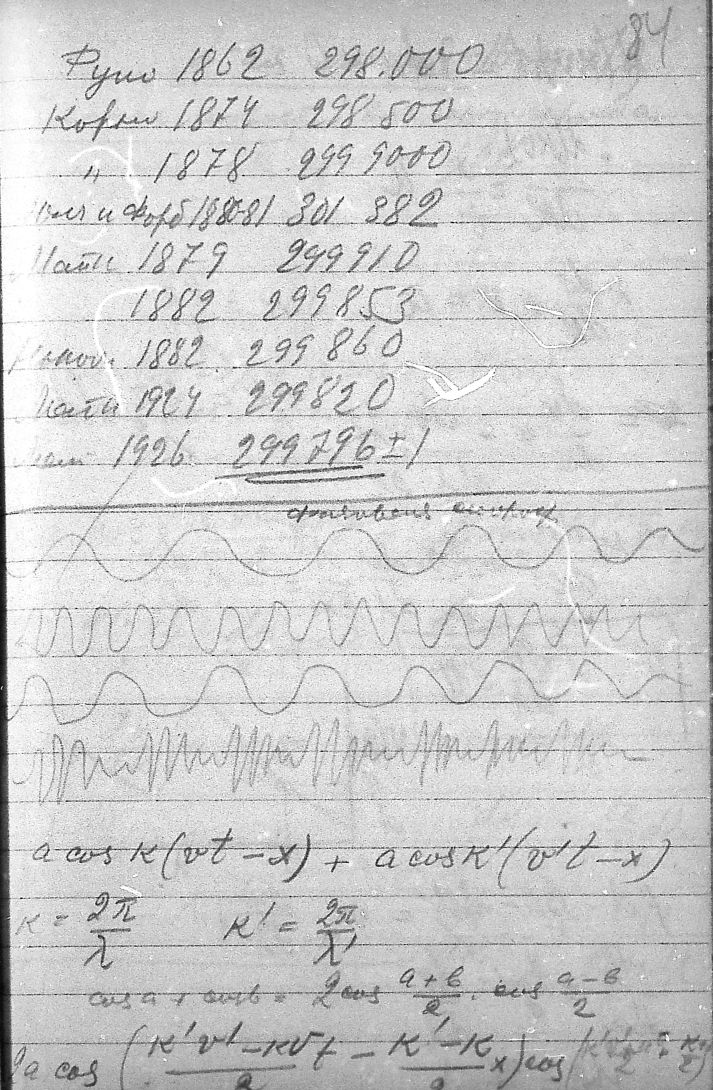 84
Фуко 1862 298.000
Корню 1874 298 500
„ 1878 299 9000
и Форб 1880-81 301 382
1879 299910
1882 299853
1882 299860
1924 299820
1926 299796±1
фазовая скорость
a cos k(vt-x) + a cos k'(v't-x)
k = 2π/λ k' = 2π/λ'
cos a + cos b = 2 cos a+b/2 . cos a-b/2
2a cos (k'v'-kv/2 t - k'-k/2 x) cos